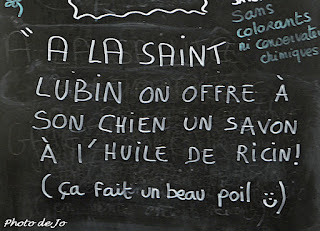 Sans
colorants
ni conservateurs
chimiques
" A LA SAINT
LUBIN ON OFFRE À
SON CHIEN UN SAVON
À L'HUILE DE RICIN!
(ça fait un beau poil ☺)
Photo de Jo